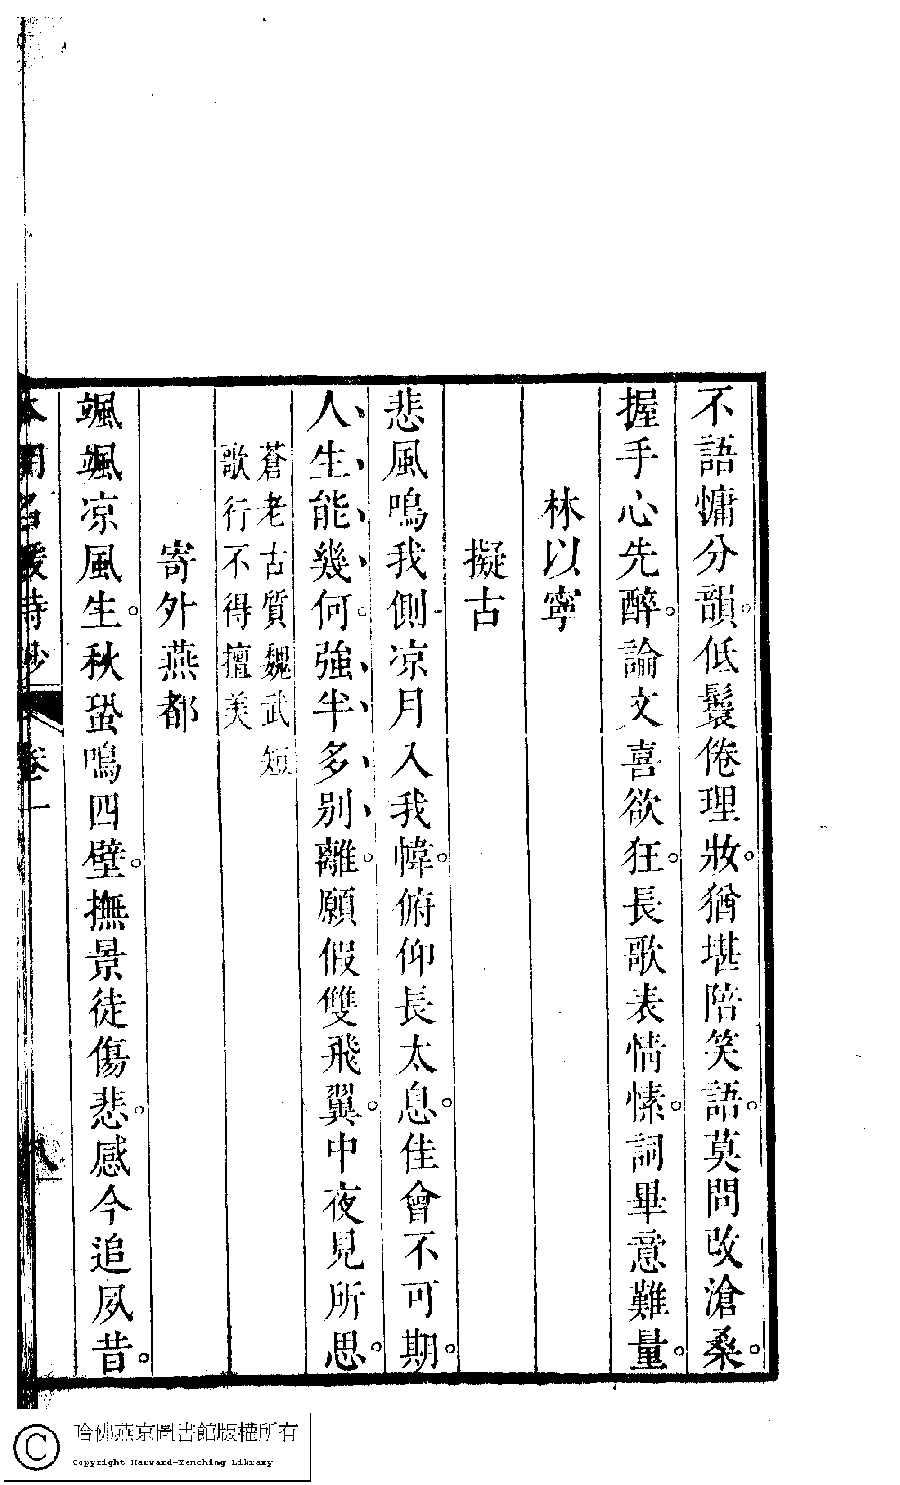 不語慵分韻。低鬟倦理妝。猶堪陪笑語。莫問改滄桑。
握手心先醉。論文喜欲狂。長歌表情愫。詞畢意難量。
林以寧
擬古
悲風鳴我側涼月入我幃。俯仰長太息。佳會不可期。
人、生、能、幾、何。強、半、多、別、離。願假雙飛翼。中夜見所思。
蒼老古質魏武短
歌行不得擅美
寄外燕都
颯颯凉風生。秋蛩鳴四壁。撫景徒傷悲。感今追夙昔。
本朝名媛詩鈔 卷一 八
哈佛燕京圖書館版權所有
Copyright Harvard-Yenching Library